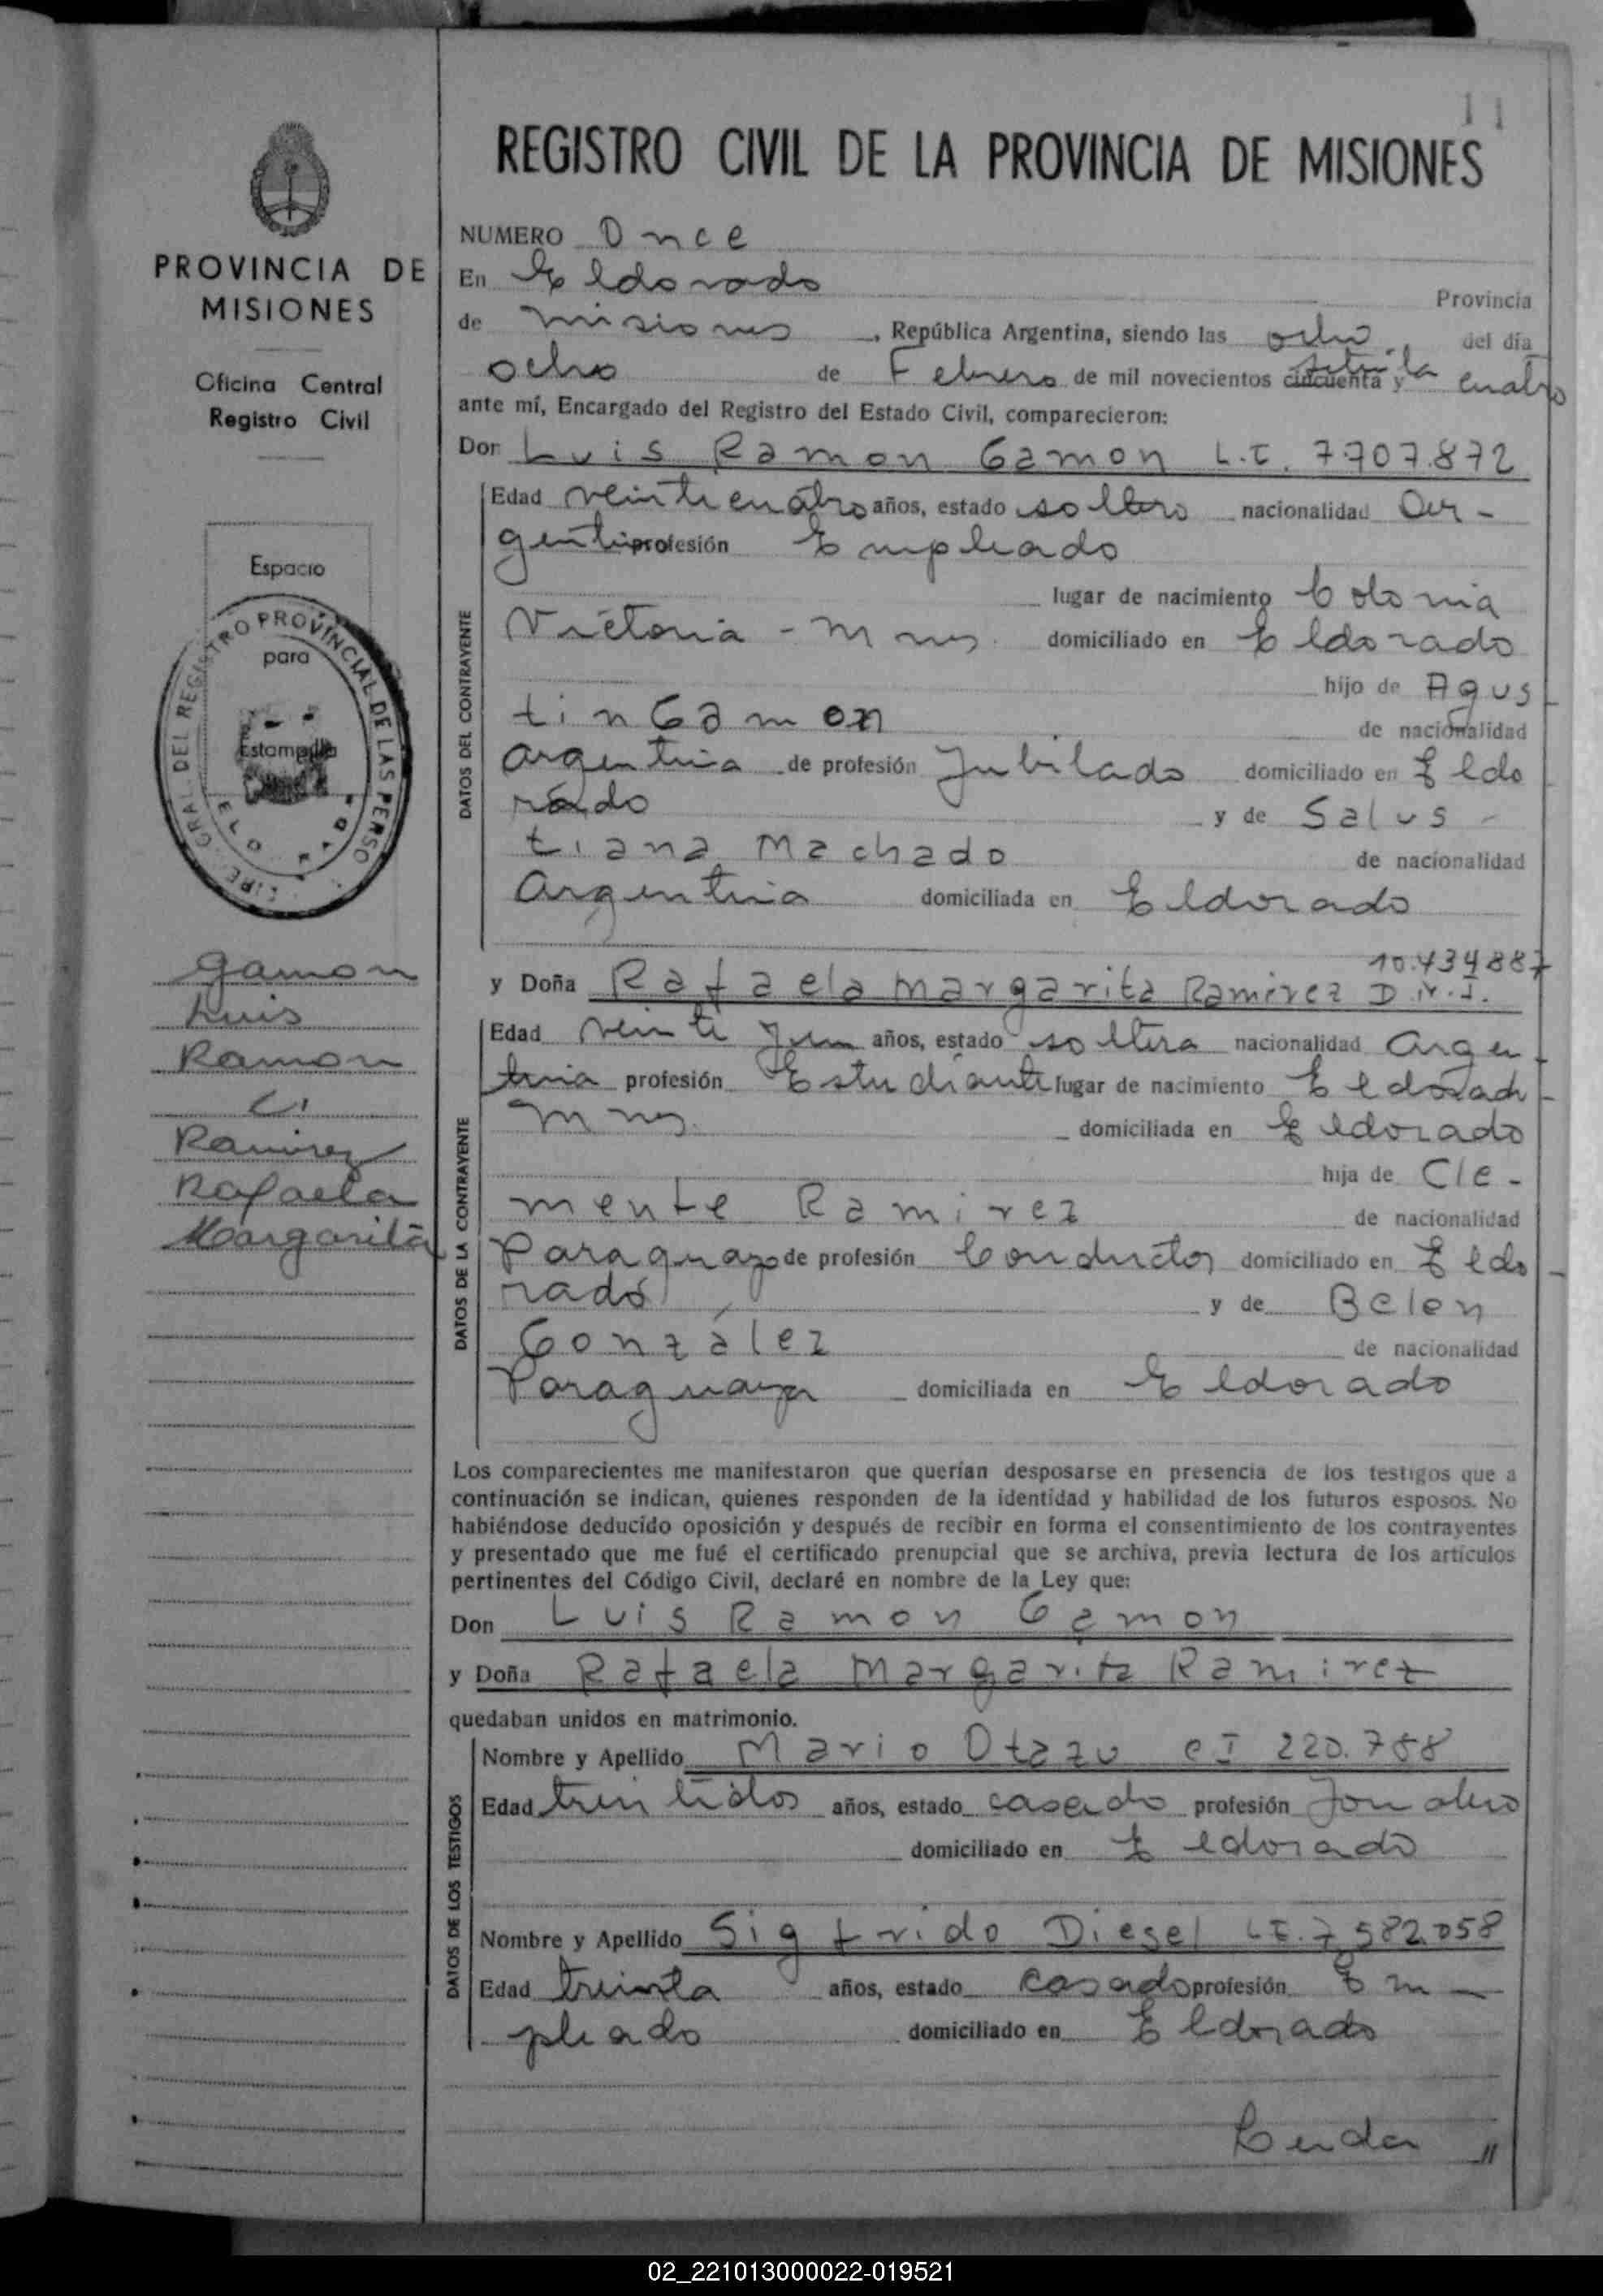 11
REGISTRO CIVIL DE LA PROVINCIA DE MISIONES
PROVINCIA DE
MISIONES
Oficina Central
Registro Civil
Espacio
para
Estampilla
DIRE. GRAL. DEL REGISTRO PROVINCIAL DE LAS PERSO
Gamon
Luis
Ramon
c/
Ramirez
Rafaela
Margarita
NUMERO Once
En Eldorado
Provincia
de Misiones, República Argentina, siendo las ocho del día
ocho de Febrero de mil novecientos cincuenta y setenta cuatro
ante mí, Encargado del Registro del Estado Civil, comparecieron:
Don Luis Ramon Gamon L.E. 7.707.872
DATOS DEL CONTRAYENTE
Edad veinticuatro años, estado soltero nacionalidad Ar-
gentino profesión Empleado
lugar de nacimiento Colonia
Victoria - Mnes. domiciliado en Eldorado
hijo de Agus-
tin Gamon de nacionalidad
argentina de profesión Jubilado domiciliado en Eldo
rado y de Salus-
tiana Machado de nacionalidad
Argentina domiciliada en Eldorado
10.434887
y Doña Rafaela Margarita Ramirez D.N.I.
DATOS DE LA CONTRAYENTE
Edad veinte y un años, estado soltera nacionalidad Argen-
tina profesión Estudiante lugar de nacimiento Eldorado-
Mnes. domiciliada en Eldorado
hija de Cle-
mente Ramirez de nacionalidad
Paraguayo de profesión Conductor domiciliado en Eldo-
rado y de Belen
González de nacionalidad
Paraguaya domiciliada en Eldorado
Los comparecientes me manifestaron que querían desposarse en presencia de los testigos que a
continuación se indican, quienes responden de la identidad y habilidad de los futuros esposos. No
habiéndose deducido oposición y después de recibir en forma el consentimiento de los contrayentes
y presentado que me fué el certificado prenupcial que se archiva, previa lectura de los artículos
pertinentes del Código Civil, declaré en nombre de la Ley que:
Don Luis Ramon Gamon
y Doña Rafaela Margarita Ramirez
quedaban unidos en matrimonio.
DATOS DE LOS TESTIGOS
Nombre y Apellido Mario Otazu CI 220.788
Edad treintidos años, estado casado profesión Jornalero
domiciliado en Eldorado
Nombre y Apellido Sigfrido Diesel LE. 7.582.058
Edad treinta años, estado casado profesión Em-
pleado domiciliado en Eldorado
02_221013000022-019521